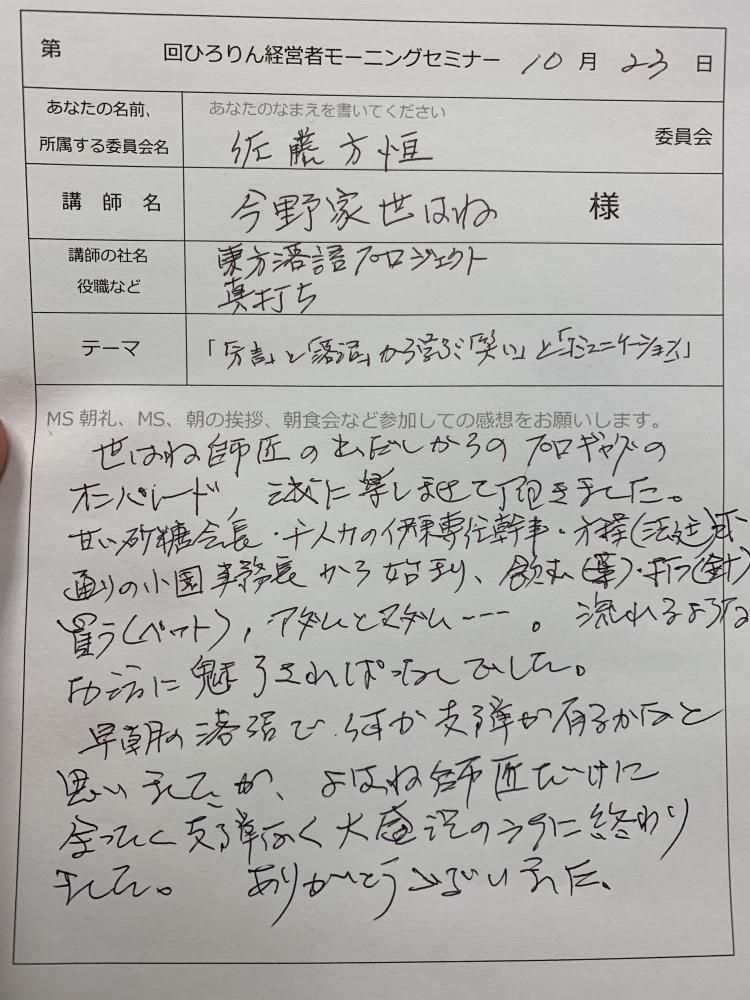 第 回ひろりん経営者モーニングセミナー 10月23日
あなたの名前、
所属する委員会名
あなたのなまえを書いてください
佐藤方恒 委員会
講師名 今野家世はね 様
講師の社名
役職など
東方落語プロジェクト
真打ち
テーマ 「方言」と「落語」から学ぶ「笑い」と「コミュニケーション」
MS朝礼、MS、朝の挨拶、朝食会など参加しての感想をお願いします。
世はね師匠の出だしからのプロギャグの
オンパレード、誠に楽しませて頂きました。
甘い砂糖会長・千人力の伊東専任幹事・方程(法廷)式
通りの小国事務長から始まり、飲む(薬)・打つ(針)
買う(ペット)、アダムとマダム---。流れるような
お話に魅了されっぱなしでした。
早朝の落語で何か支障が有るかなと
思いましたが、よはね師匠だけに
全つたく支障なく大盛況のうちに終わり
ました。ありがとうございました。